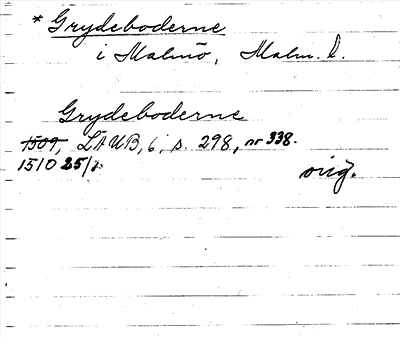 * Grydeboderne
i Malmö, Malm. l.
Grydeboderne
1509, LAUB, 6, s. 298, nr 338.
1510 25/7. orig.